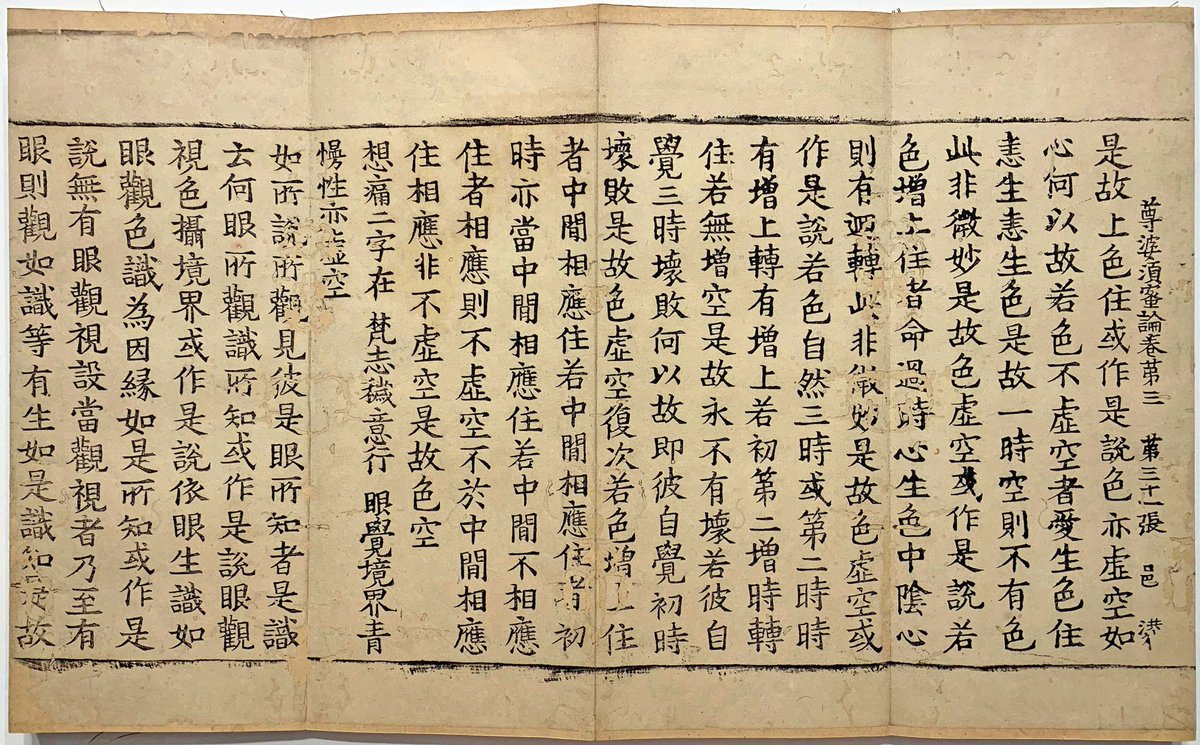 尊婆須蜜論卷第三 第三十一張 邑 洪
是故上色住或作是說色亦虛空如
心何以故若色不虛空者愛生色住
恚生恚生色是故一時空則不有色
此非微妙是故色虛空或作是說若
色增上住者命過時心生色中陰心
則有迴轉此非微妙是故色虛空或
作是說若色自然三時或第二時時
有增上轉有增上若初第二增時轉
住若無增空是故永不有壞若彼自
覺三時壞敗何以故即彼自覺初時
壞敗是故色虛空復次若色增上住
者中間相應住若中間相應住者初
時亦當中間相應住若中間不相應
住者相應則不虛空不於中間相應
住相應非不虛空是故色空
想痛二字在 梵志穢意行 眼覺境界青
慢性亦虛空
如所說所觀見彼是眼所知者是識
云何眼所觀識所知或作是說眼觀
視色攝境界或作是說依眼生識如
眼觀色識為因緣如是所知或作是
說無有眼觀視設當觀視者乃至有
眼則觀如識等有生如是識知是故